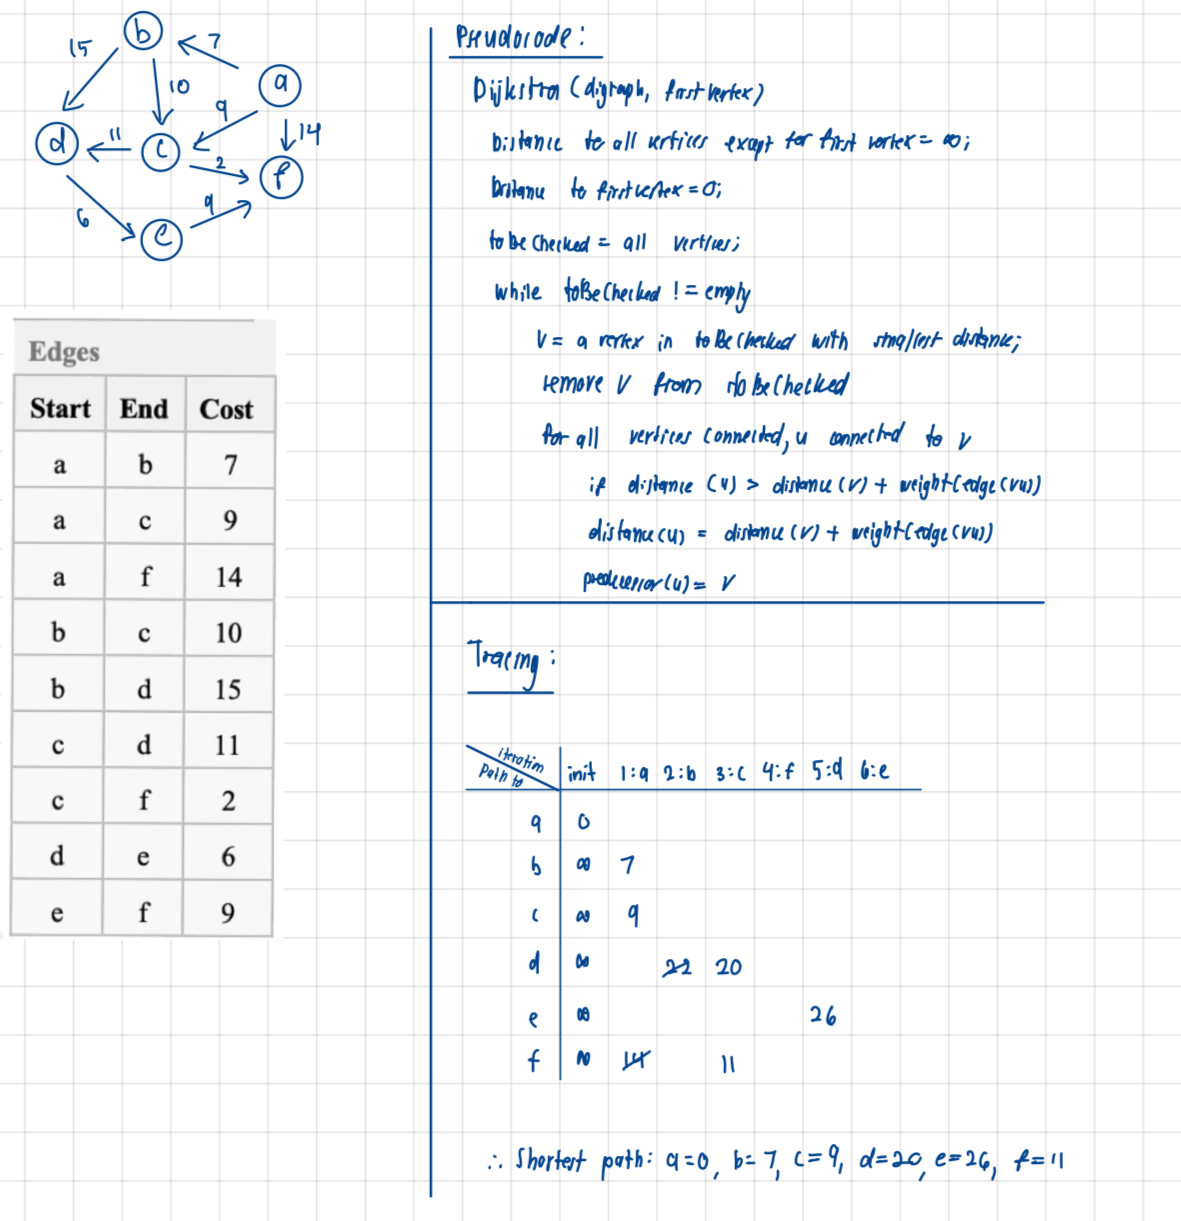 b
15
7
a
10
9
14
d
11
c
2
f
6
9
e
Edges
Start End Cost
a b 7
a c 9
a f 14
b c 10
b d 15
c d 11
c f 2
d e 6
e f 9
Pseudocode:
Dijkstra (digraph, first vertex)
Distance to all vertices except for first vertex = ∞;
Distance to first vertex = 0;
to be Checked = all vertices;
while toBeChecked != empty
V = a vertex in toBeChecked with smallest distance;
remove V from toBeChecked
for all vertices connected, u connected to v
if distance (u) > distance (v) + weight(edge(vu))
distance(u) = distance (v) + weight(edge(vu))
predecessor(u) = v
Tracing:
iteration
Path to init 1:a 2:b 3:c 4:f 5:d 6:e
a 0
b ∞ 7
c ∞ 9
d ∞ 22 20
e ∞ 26
f ∞ 14 11
∴ Shortest path: a=0, b=7, c=9, d=20, e=26, f=11